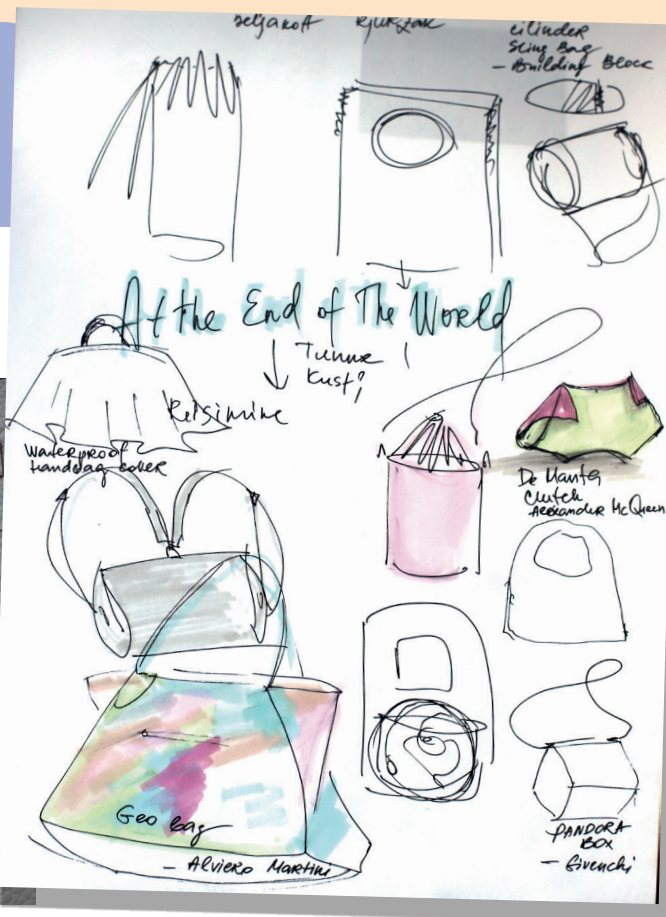 seljakott rjukzak
cilinder
Sling Bag
– Building Block
At the End of The World
Tunne
Kust?
Reisimine
Waterproof
handbag cover
De Manta
Clutch
Alexander McQueen
Geo bag
– Alviero Martini
PANDORA
BOX
– Givenchi